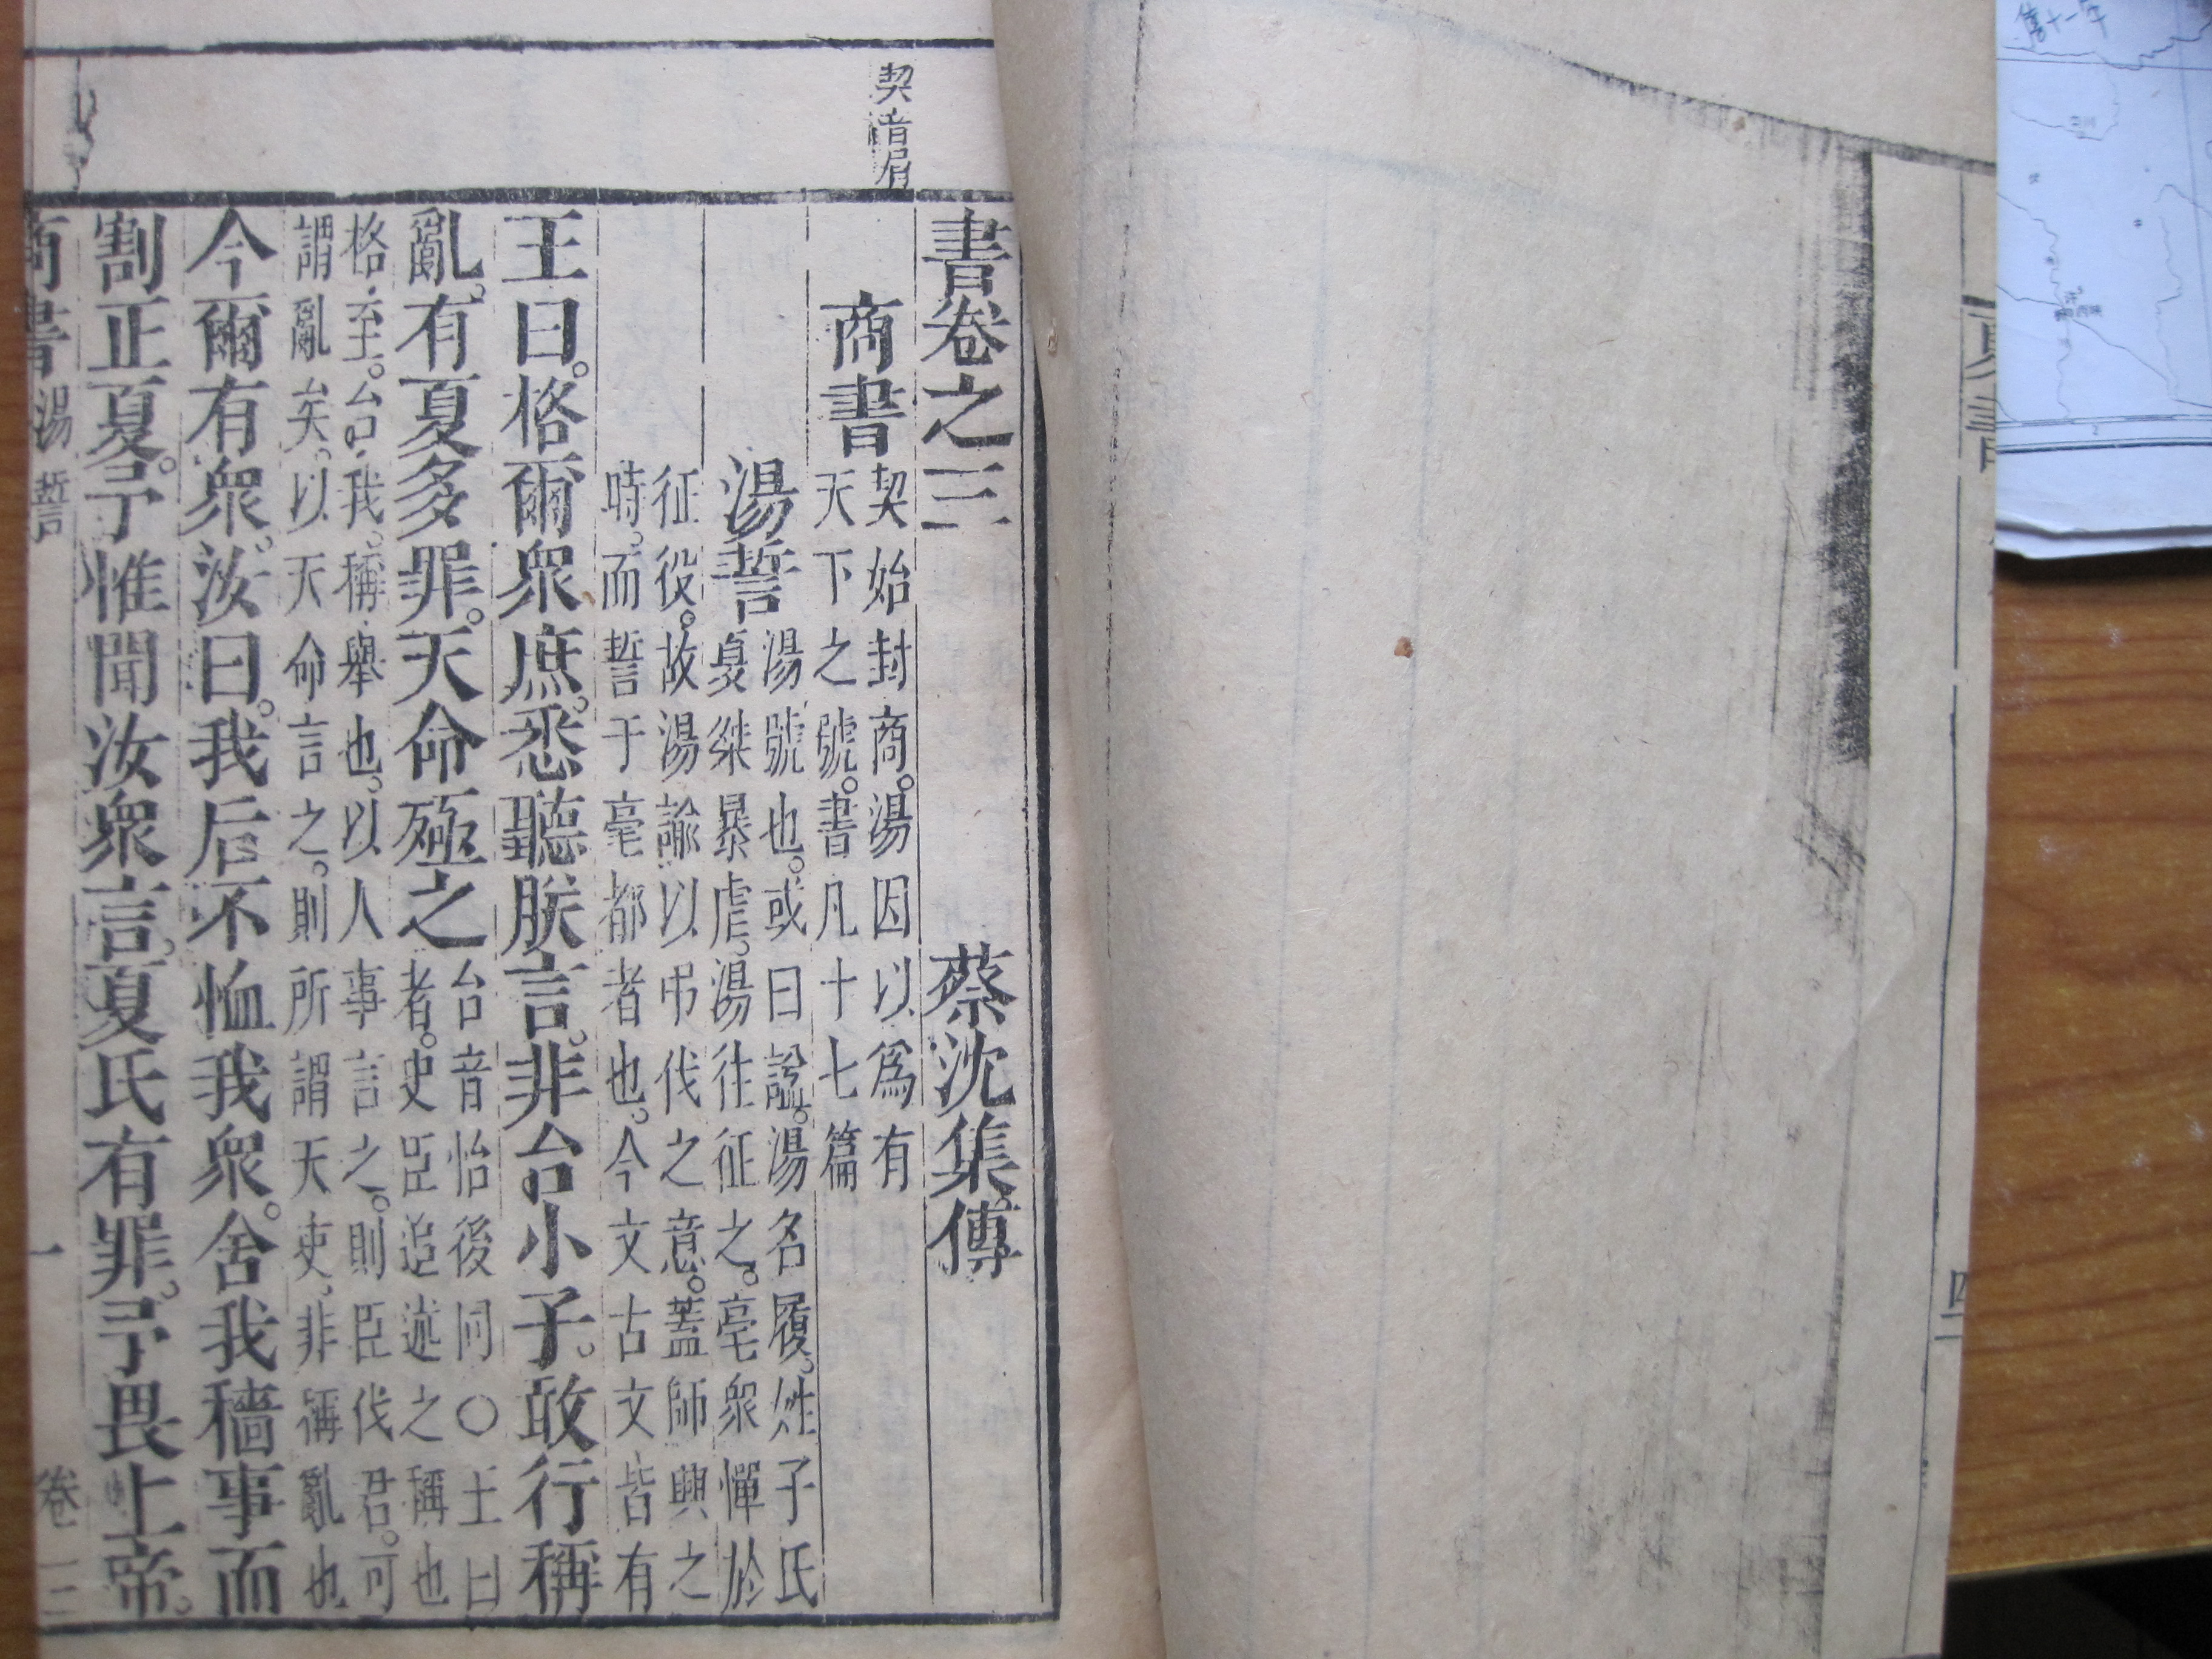 契音屑
書卷之三 蔡沈集傳
商書 契始封商。湯因以爲有
天下之號。書凡十七篇
湯誓 湯號也。或曰諡。湯名履。姓子氏
夏桀暴虐。湯往征之。亳衆憚於
征役。故湯諭以弔伐之意。蓋師興之
時。而誓于亳都者也。今文古文皆有
王曰。格爾衆庶。悉聽朕言。非台小子。敢行稱
亂。有夏多罪。天命殛之 台音怡後同○王曰
者。史臣追述之稱也
格。至。台。我。稱。舉也。以人事言之。則臣伐君。可
謂亂矣。以天命言之。則所謂天吏。非稱亂也
今爾有衆。汝曰。我后不恤我衆。舍我穡事而
割正夏。予惟聞汝衆言。夏氏有罪。予畏上帝。
商書 湯誓 一 卷三